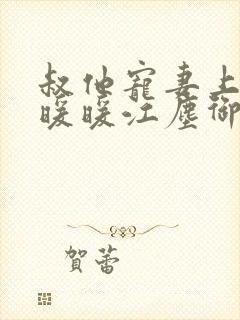 叔他寵妻上
暖暖江塵御
賀蕾